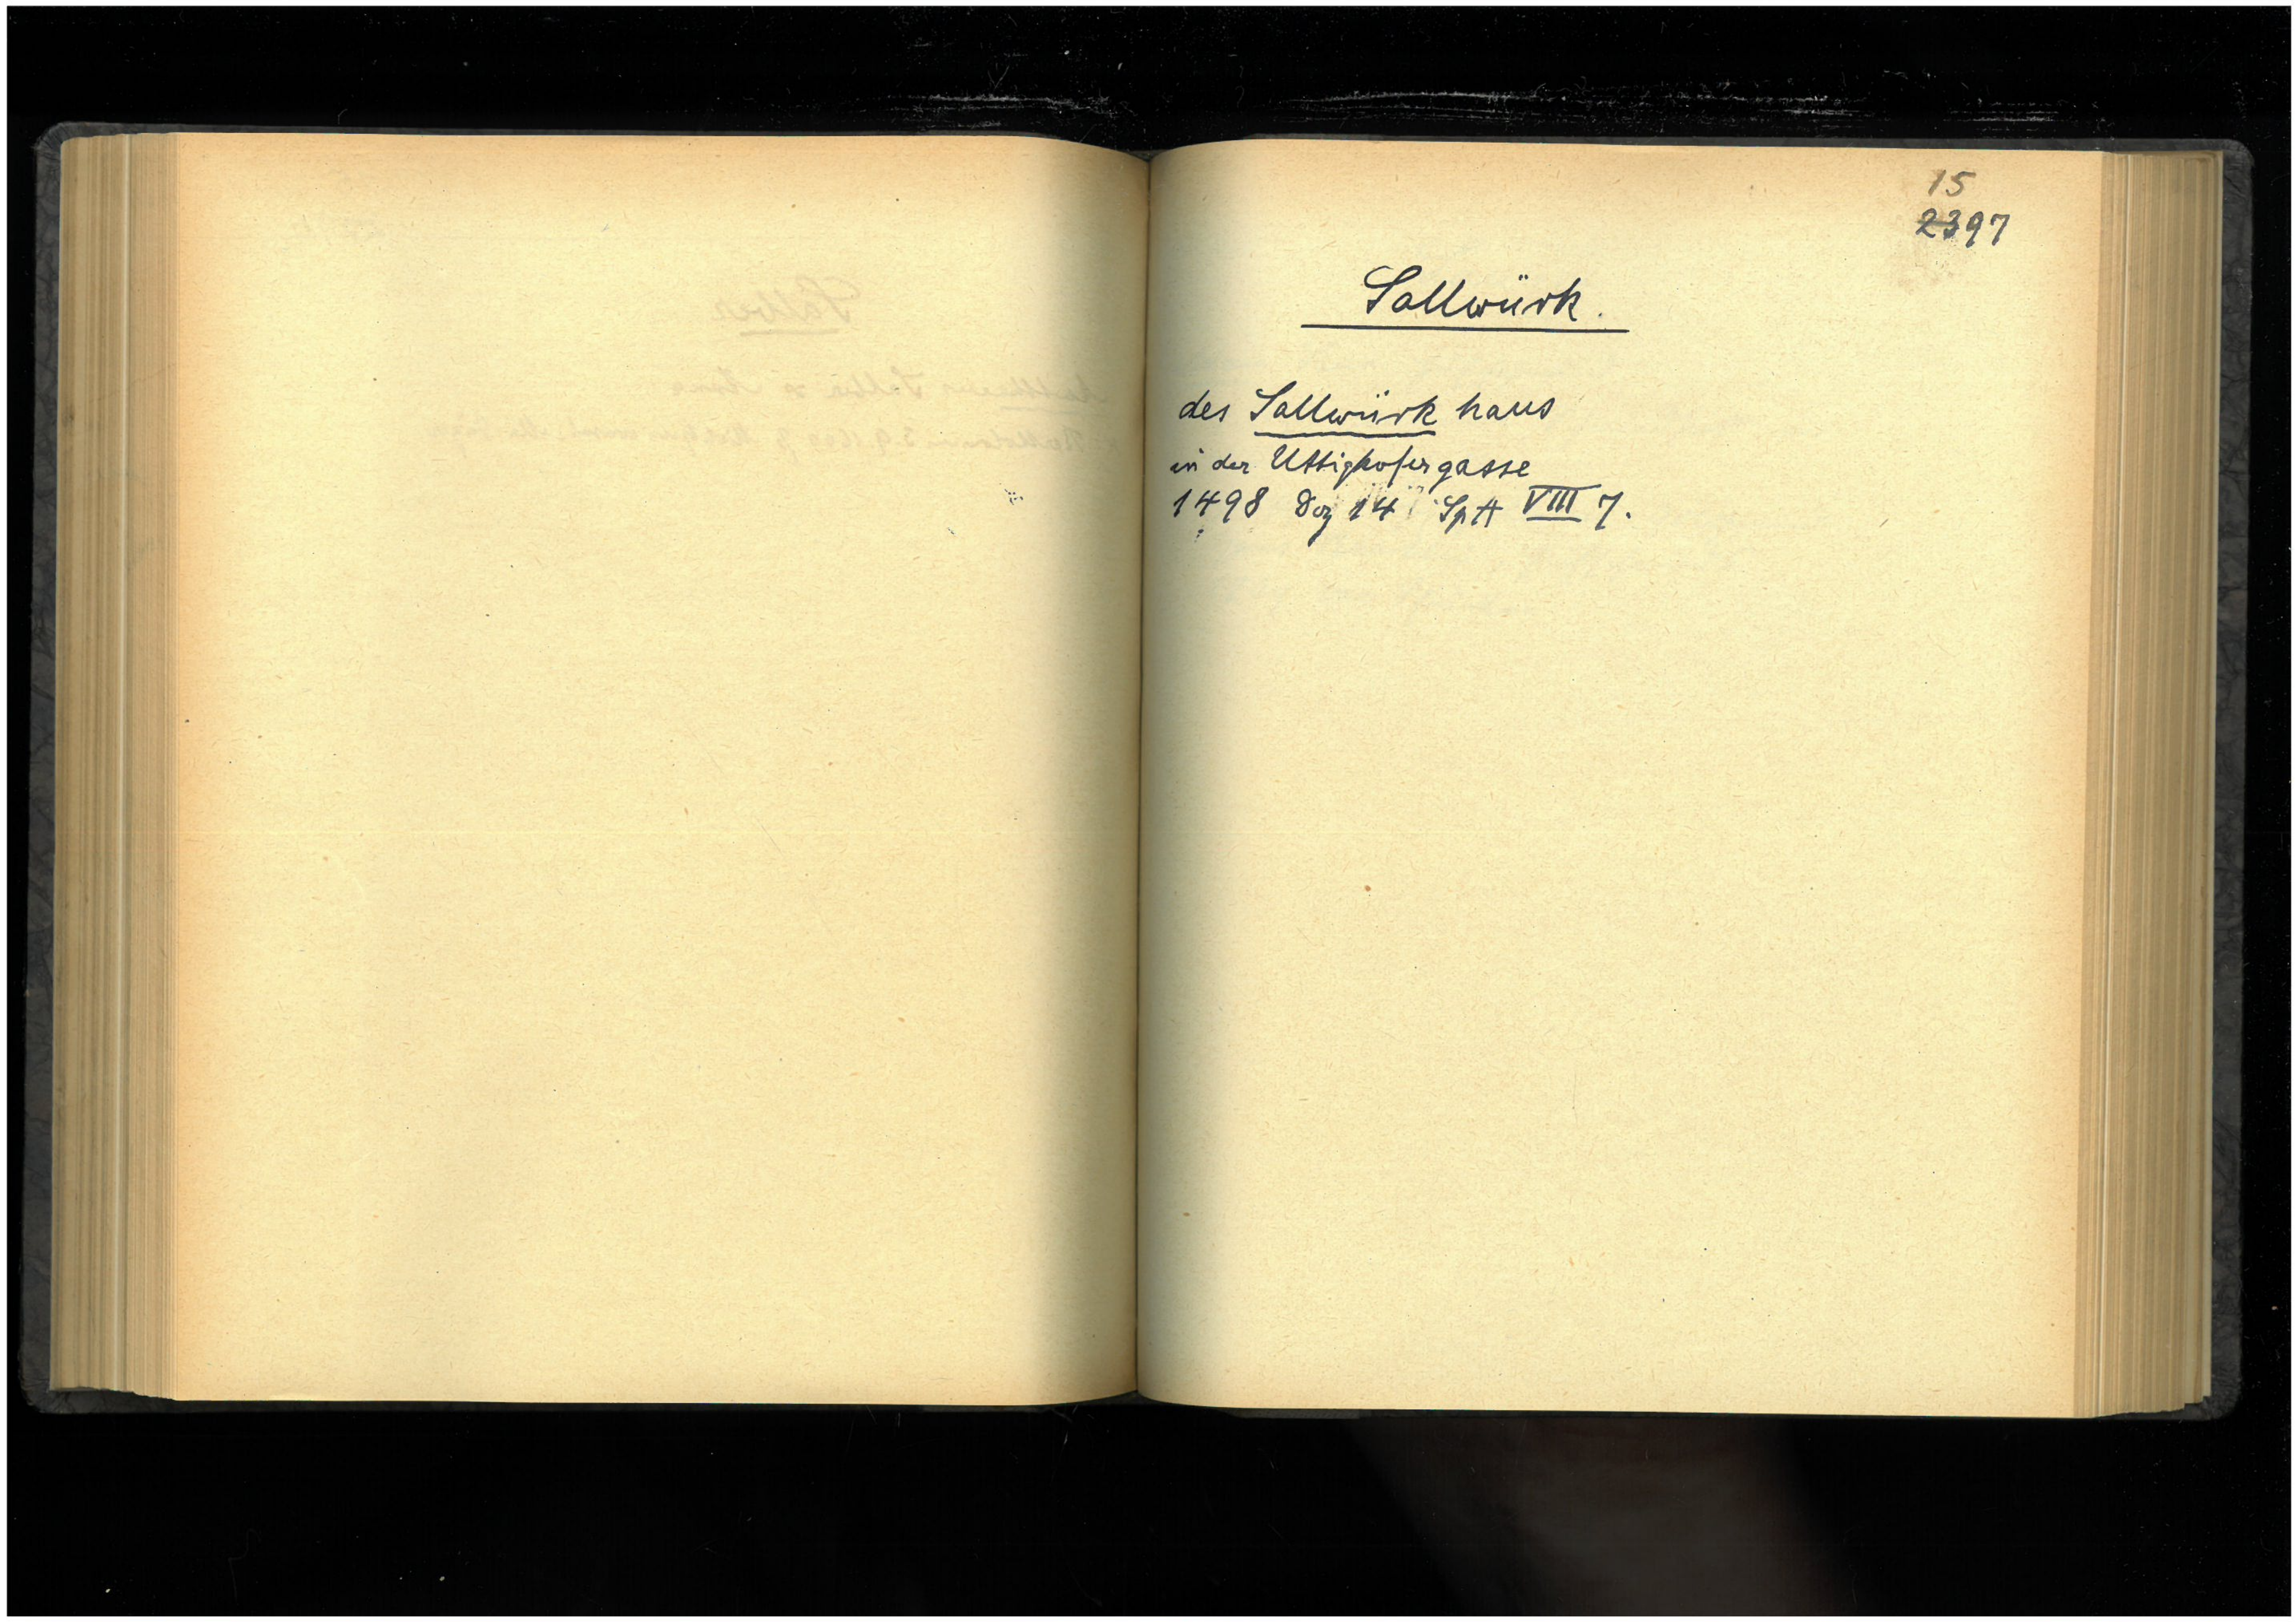 15
2397
Sallwürk.
des Sallwürk haus
in der Uttighofergasse
1498 Dez 14 SpA VIII 7.